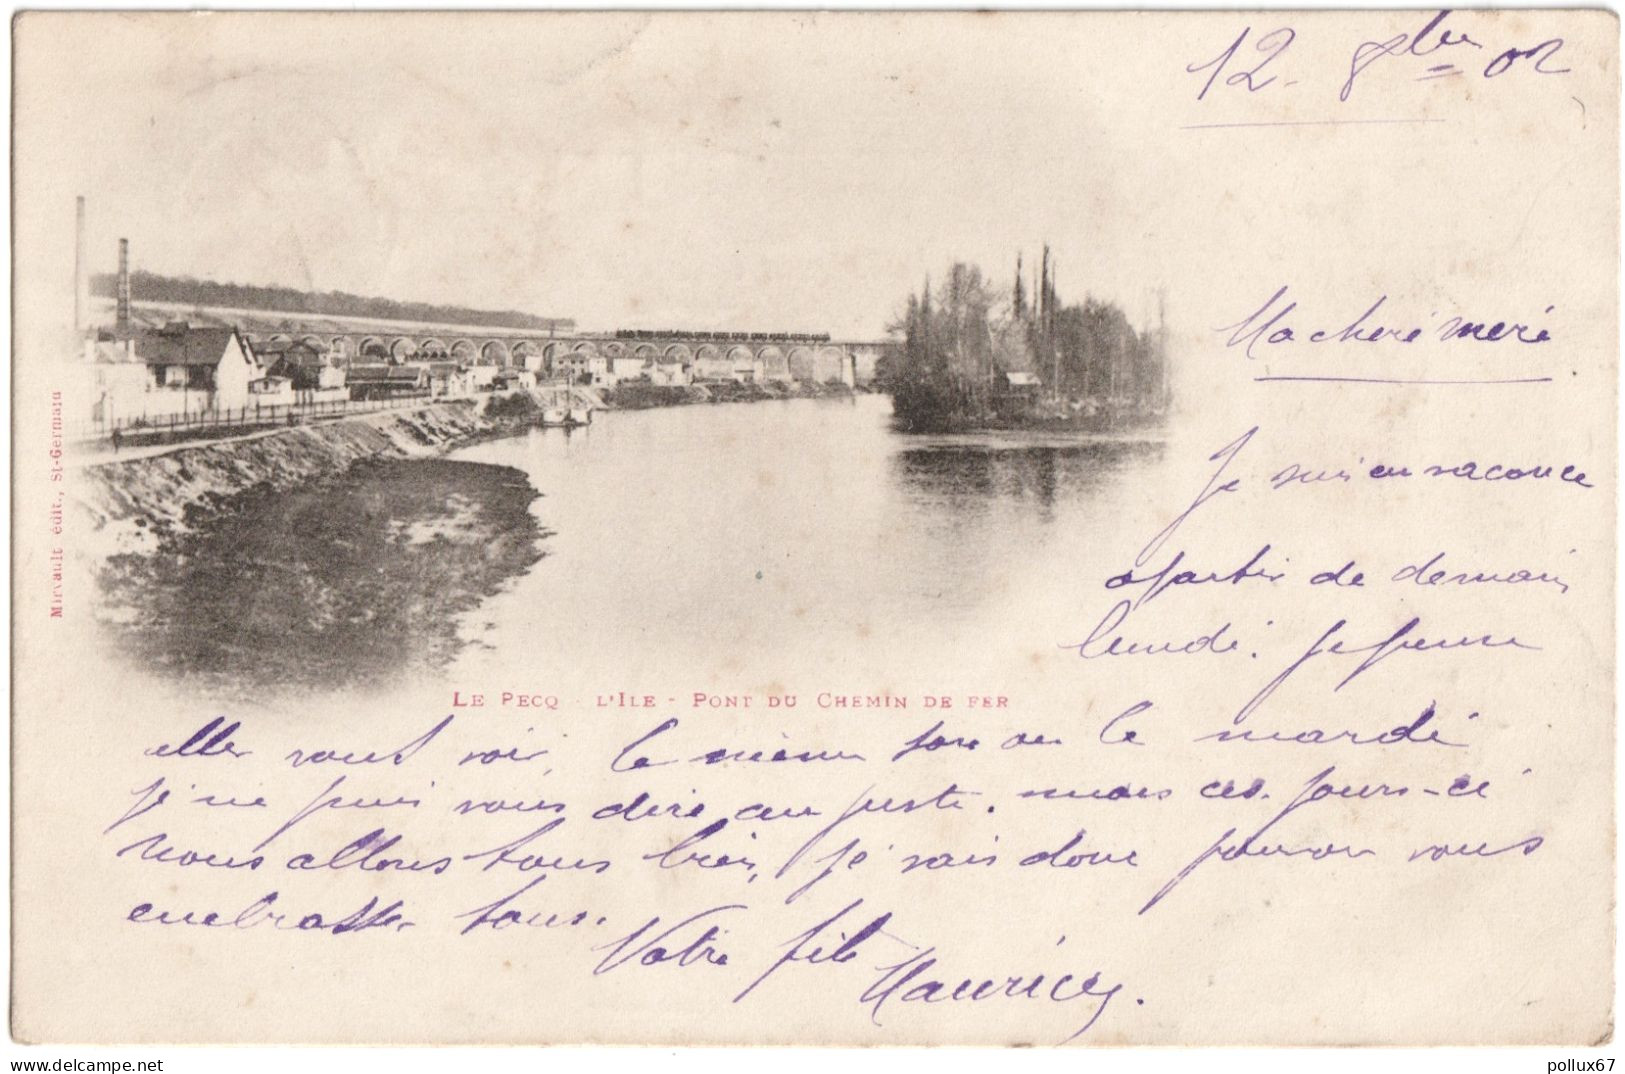 12 - 8bre 02
Ma cheré meré
Je suis en vacance
apartir de demain
lundi. Je pense
aller vous voir, le même jour ou le mardi
je ne puis vous dire au juste. mais ces jours-ci
nous allons tous bien, je vais donc pouvoir vous
embrasser tous.
Votre fils
Maurice.
LE PECQ - L'ILE - PONT DU CHEMIN DE FER
Mirvault édit., St-Germain
delcampe.net
pollux67